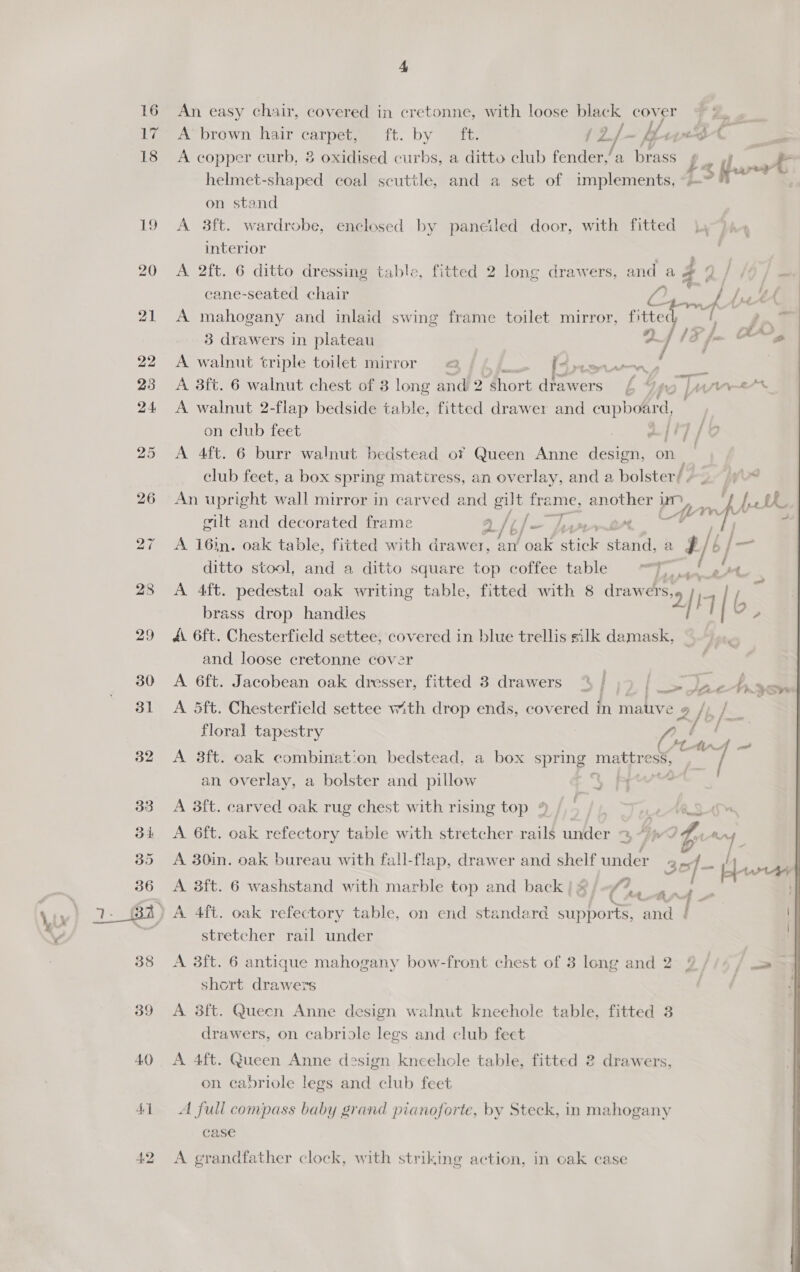 4
16 An easy chair, covered in cretonne, with loose black cover
17 A brown hair carpet, ft. by ft. 12/-
18 A copper curb, 3 oxidised curbs, a ditto club fender, a brass
helmet-shaped coal scuttle, and a set of implements,
on stand
19 A 3ft. wardrobe, enclosed by panelled door, with fitted
interior
20 A 2ft. 6 ditto dressing table, fitted 2 long drawers, and a
cane-seated chair
21 A mahogany and inlaid swing frame toilet mirror, fitted
3 drawers in plateau 2/18/-
22 A walnut triple toilet mirror
23 A 3ft. 6 walnut chest of 3 long and 2 short drawers
24 A walnut 2-flap bedside table, fitted drawer and cupboard,
on club feet
25 A 4ft. 6 burr walnut bedstead of Queen Anne design, on
club feet, a box spring mattress, an overlay, and a bolster
26 An upright wall mirror in carved and gilt frame, another in
gilt and decorated frame
27 A 16in. oak table, fitted with drawer, an oak stick stand, a
ditto stool, and a ditto square top coffee table
28 A 4ft. pedestal oak writing table, fitted with 8 drawers,
brass drop handles
29 A 6ft. Chesterfield settee, covered in blue trellis silk damask,
and loose cretonne cover
30 A 6ft. Jacobean oak dresser, fitted 3 drawers
31 A 5ft. Chesterfield settee with drop ends, covered in mauve
floral tapestry
32 A 3ft. oak combination bedstead, a box spring mattress,
an overlay, a bolster and pillow
33 A 3ft. carved oak rug chest with rising top
34 A 6ft. oak refectory table with stretcher rails under
35 A 30in. oak bureau with fall-flap, drawer and shelf under 30/-
36 A 3ft. 6 washstand with marble top and back
37 A 4ft. oak refectory table, on end standard supports, and
stretcher rail under
38 A 3ft. 6 antique mahogany bow-front chest of 3 long and 2
short drawers
39 A 3ft. Queen Anne design walnut kneehole table, fitted 3
drawers, on cabriole legs and club feet
40 A 4ft. Queen Anne design kneehole table, fitted 2 drawers,
on cabriole legs and club feet
41 A full compass baby grand pianoforte, by Steck, in mahogany
case
42 A grandfather clock, with striking action, in oak case